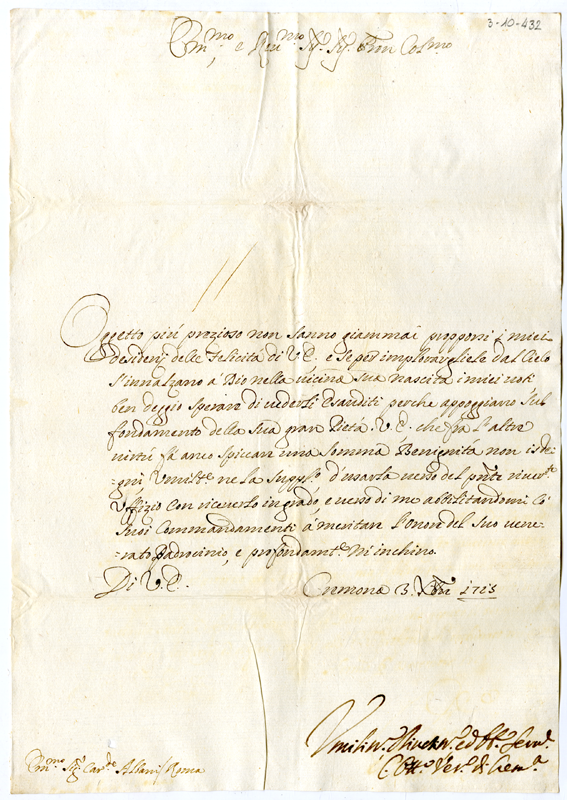 3-10-432
Em.mo, e Rev.mo Sig.r Sig.r Pron Col.mo
Oggetto piú prezioso non sanno giammai proporsi i miei
desiderj delle Felicitá di V.E. e se per implorargliele dal Cielo
s'innalzano á Dio nella vicina sua nascita i miei voti
ben deggio sperare di vederli Esauditi perche appoggiano sul
fondamento della Sua gran Pietá. V.E. che frá l'altre
virtú fá anco spiccar una somma Benignitá non isde-
gni, Umilm.te ne la suppl.co d'usarla verso del pnte river.te
Uffizio con riceverlo in grado, e verso di me abilitandomi có
suoi Commandamenti á meritar l'onor del suo vene-
rato Padrocinio, e profondam.te m'inchino.
Di V.E. Cremona 3. Xbre 1713
Umilis.o Divotis.o ed Obb. Serv.e
Em.mo Sig.r Card.e Albani Roma